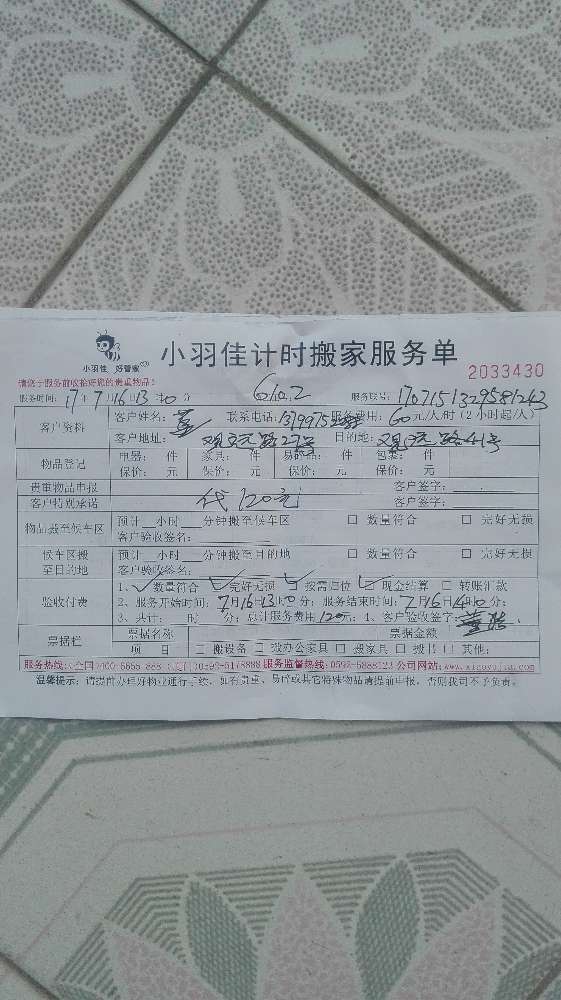 小羽佳 好管家
小羽佳计时搬家服务单
2033430
请您于服务前收拾好您的贵重物品！
服务时间：17年7月16日13时0分 服务联号：1707151329581243
客户资料
客户姓名：董 联系电话： 服务费用：60元/人/时（2小时起/人）
客户地址：观远路27号 目的地：观远路41号
物品登记
电器： 件 家具： 件 易碎品： 件 包裹： 件
保价： 元 保价： 元 保价： 元 保价： 元
贵重物品申报 客户签字：
客户特别承诺 代120元 客户签字：
物品搬至候车区
预计 小时 分钟搬至候车区 □ 数量符合 □ 完好无损
客户验收签名：
候车区搬至目的地
预计 小时 分钟搬至目的地 □ 数量符合 □ 完好无损
客户验收签名：
验收付费
1、✓数量符合 ✓完好无损 ✓按需归位 ✓现金结算 □ 转账汇款
2、服务开始时间：7月16日13时0分；服务结束时间：7月16日14时0分；
3、共计： 时 分；总计服务费用120元；4、客户验收签字：董
票据栏
票据名称 票据金额
项 目 □ 搬设备 □ 搬办公家具 □ 搬家具 □ 搬书 □ 其他：
服务热线：全国400-8868-888 服务监督热线：0592-5888123 公司网站：www.xiaoyujia.com
温馨提示：请提前办理好物业通行手续，如有贵重、易碎或其它特殊物品请提前申报，否则我司不予负责。